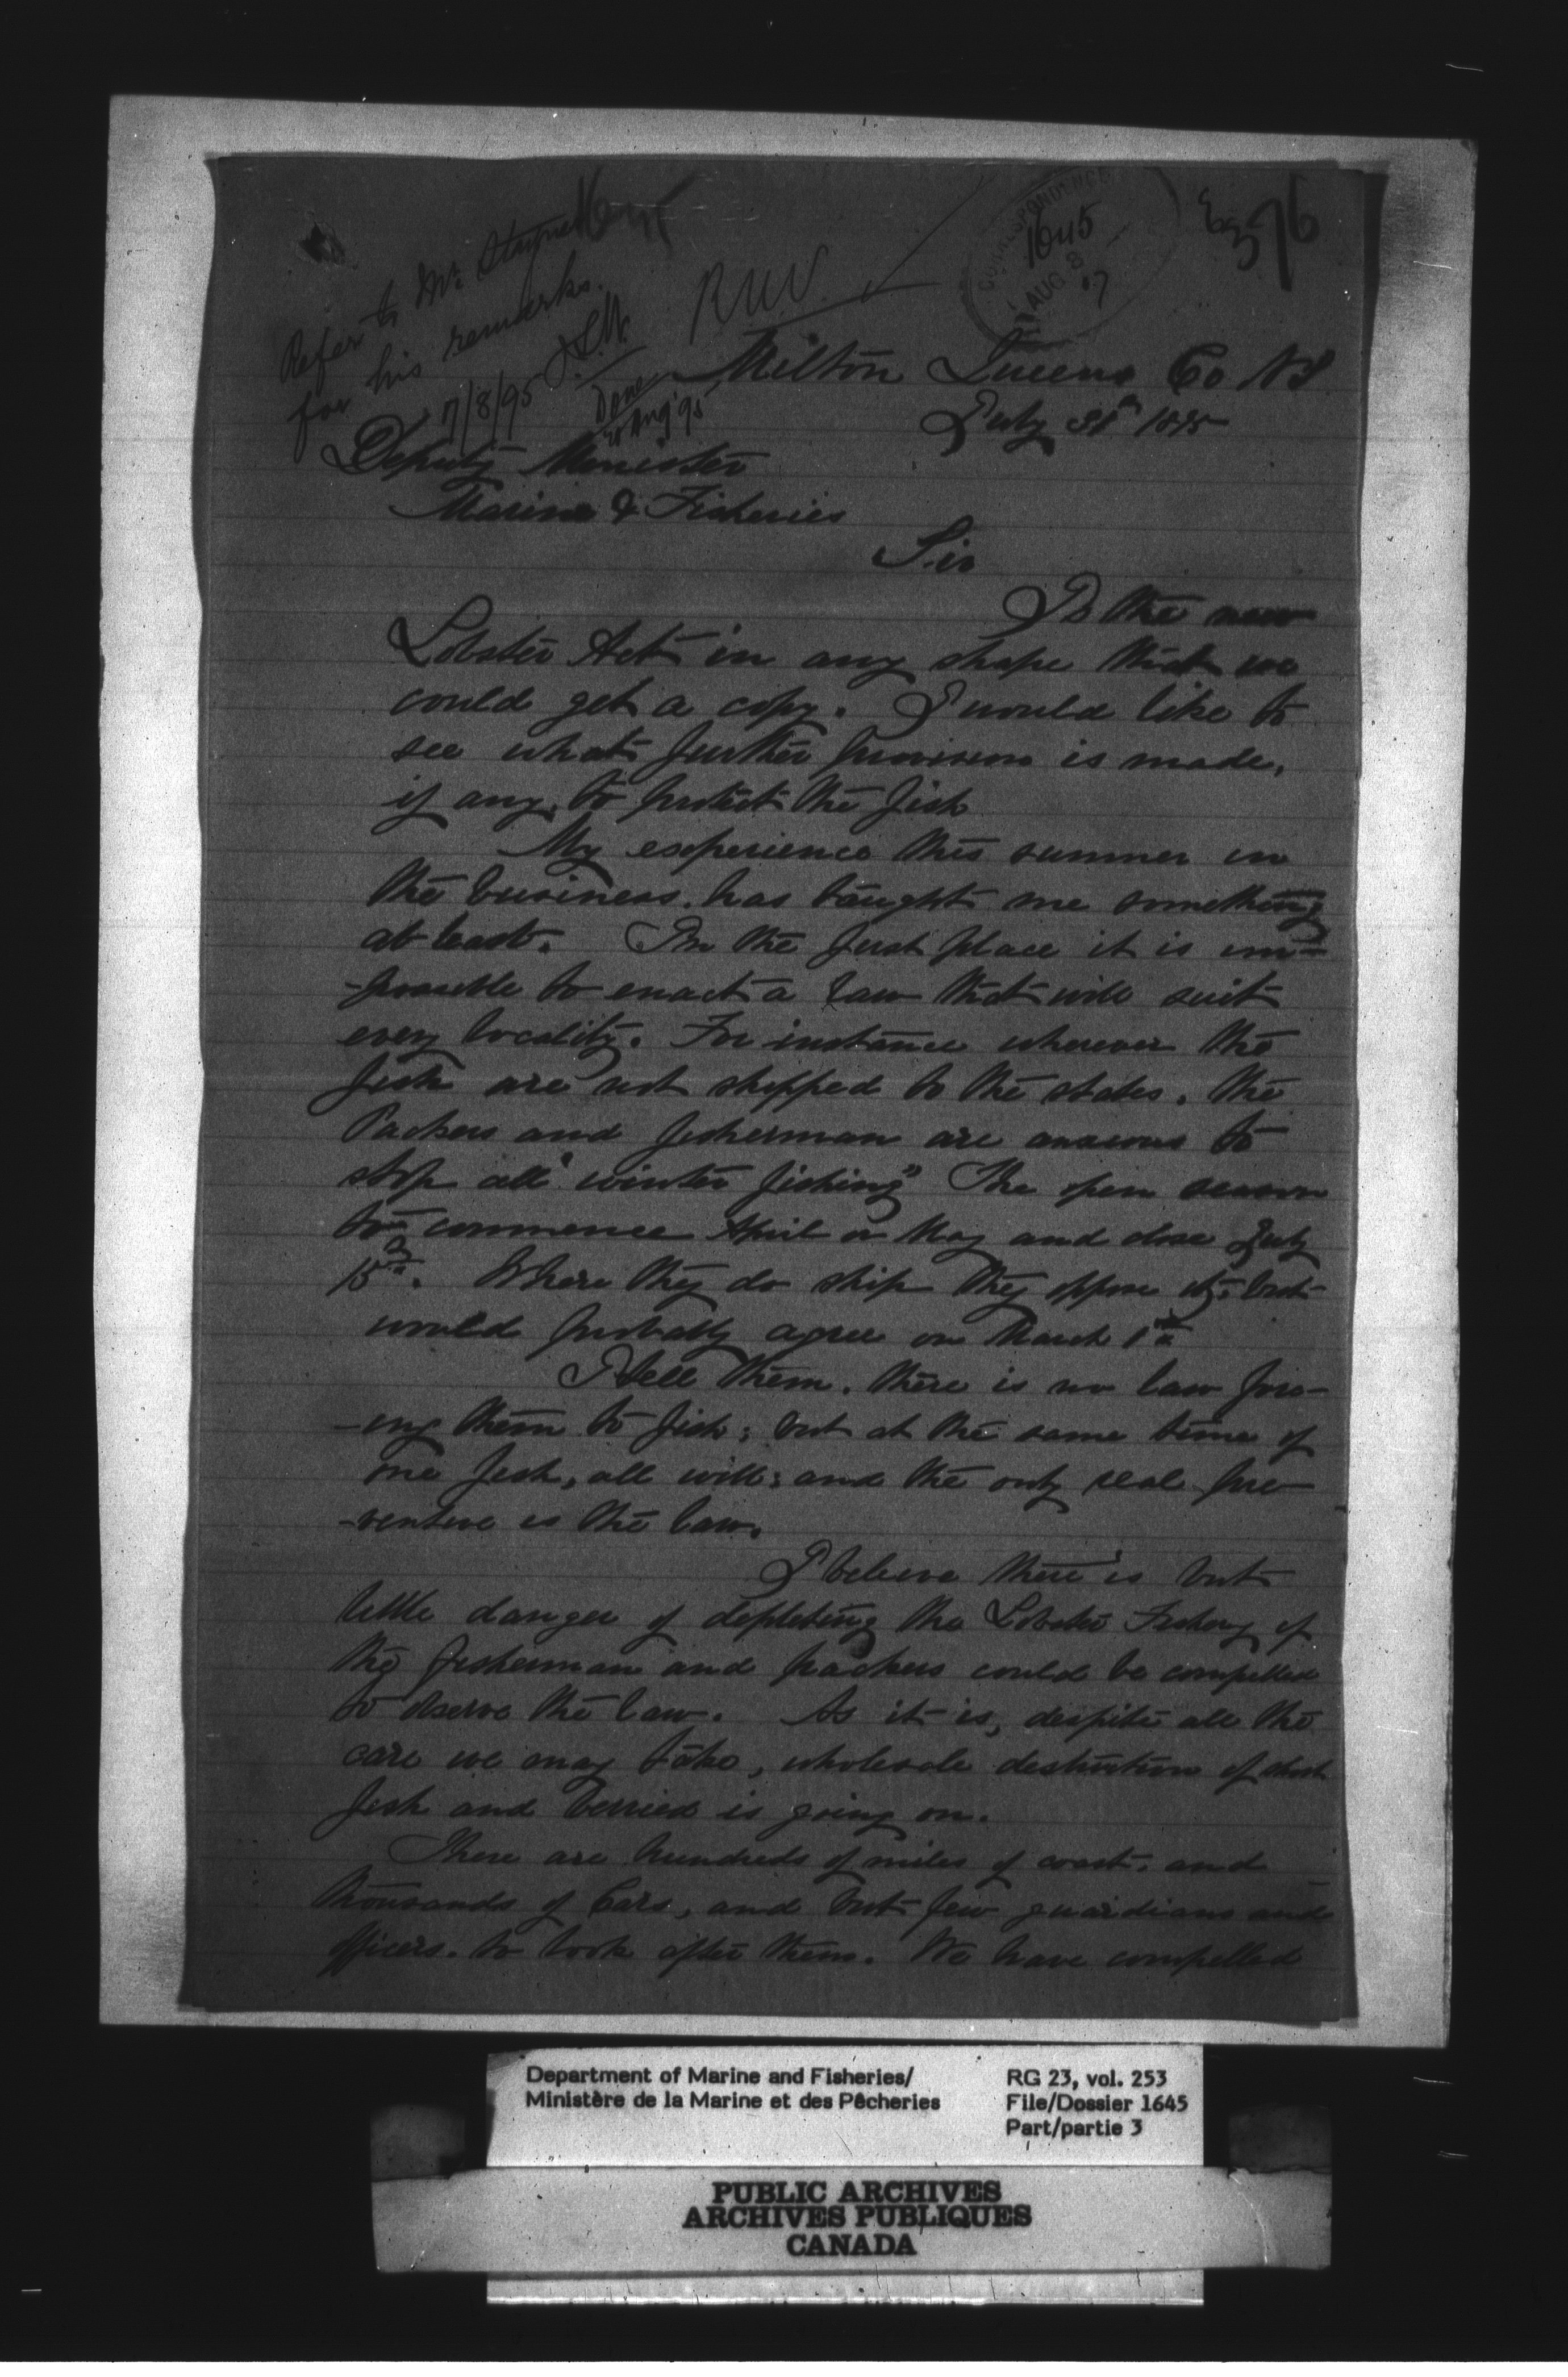 Refer to Mr.
for his remarks.
7/8/95
Done
Aug '95
CORRESPONDENCE
1645
AUG 8
Milton Queens Co NS
July 31st 1895
Deputy Minister
Marine & Fisheries
Sir
Is the new
Lobster Act in any shape that we
could get a copy. I would like to
see what further provision is made,
if any, to protect the fish
My experience this summer in
the business. has taught me something
at least. In the first place it is im=
-possible to enact a law that will suit
every locality. For instance wherever the
fish are not shipped to the states. the
Packers and fisherman are anxious to
stop all "winter fishing" The open season
to commence April or May and close July
15th. Where they do ship they oppose it, but
would probably agree on March 1st
I tell them. there is no law forc-
-ing them to fish; but at the same time if
one fish, all will; and the only real pre-
-ventive is the law.
I believe there is but
little danger of depleting the Lobster Fishery if
the fisherman and packers could be compelled
to observe the law. As it is, despite all the
care we may take, wholesale destruction of short
fish and berried is going on.
There are hundreds of miles of coast. and
thousands of Cars, and but few guardians and
officers. to look after them. We have compelled
Department of Marine and Fisheries/
Ministère de la Marine et des Pêcheries
RG 23, vol. 253
File/Dossier 1645
Part/partie 3
PUBLIC ARCHIVES
ARCHIVES PUBLIQUES
CANADA